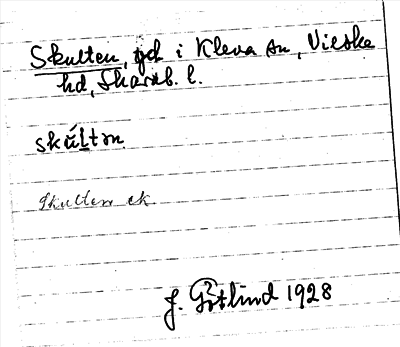 Skulten, gd i Kleva sn, Vilske
hd, Skarab. l.
skúltən
Skulten ek
J. Götlind 1928